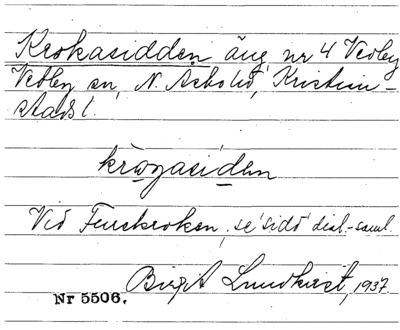 Krokasidden äng nr 4 Vedby
Vedby sn, N. Åsbo hd, Kristian-
stads l.
krogasiden
Vid Furekroken, se 'sidd' dial.-saml.
Birgit Lundkvist, 1937
Nr 5506.